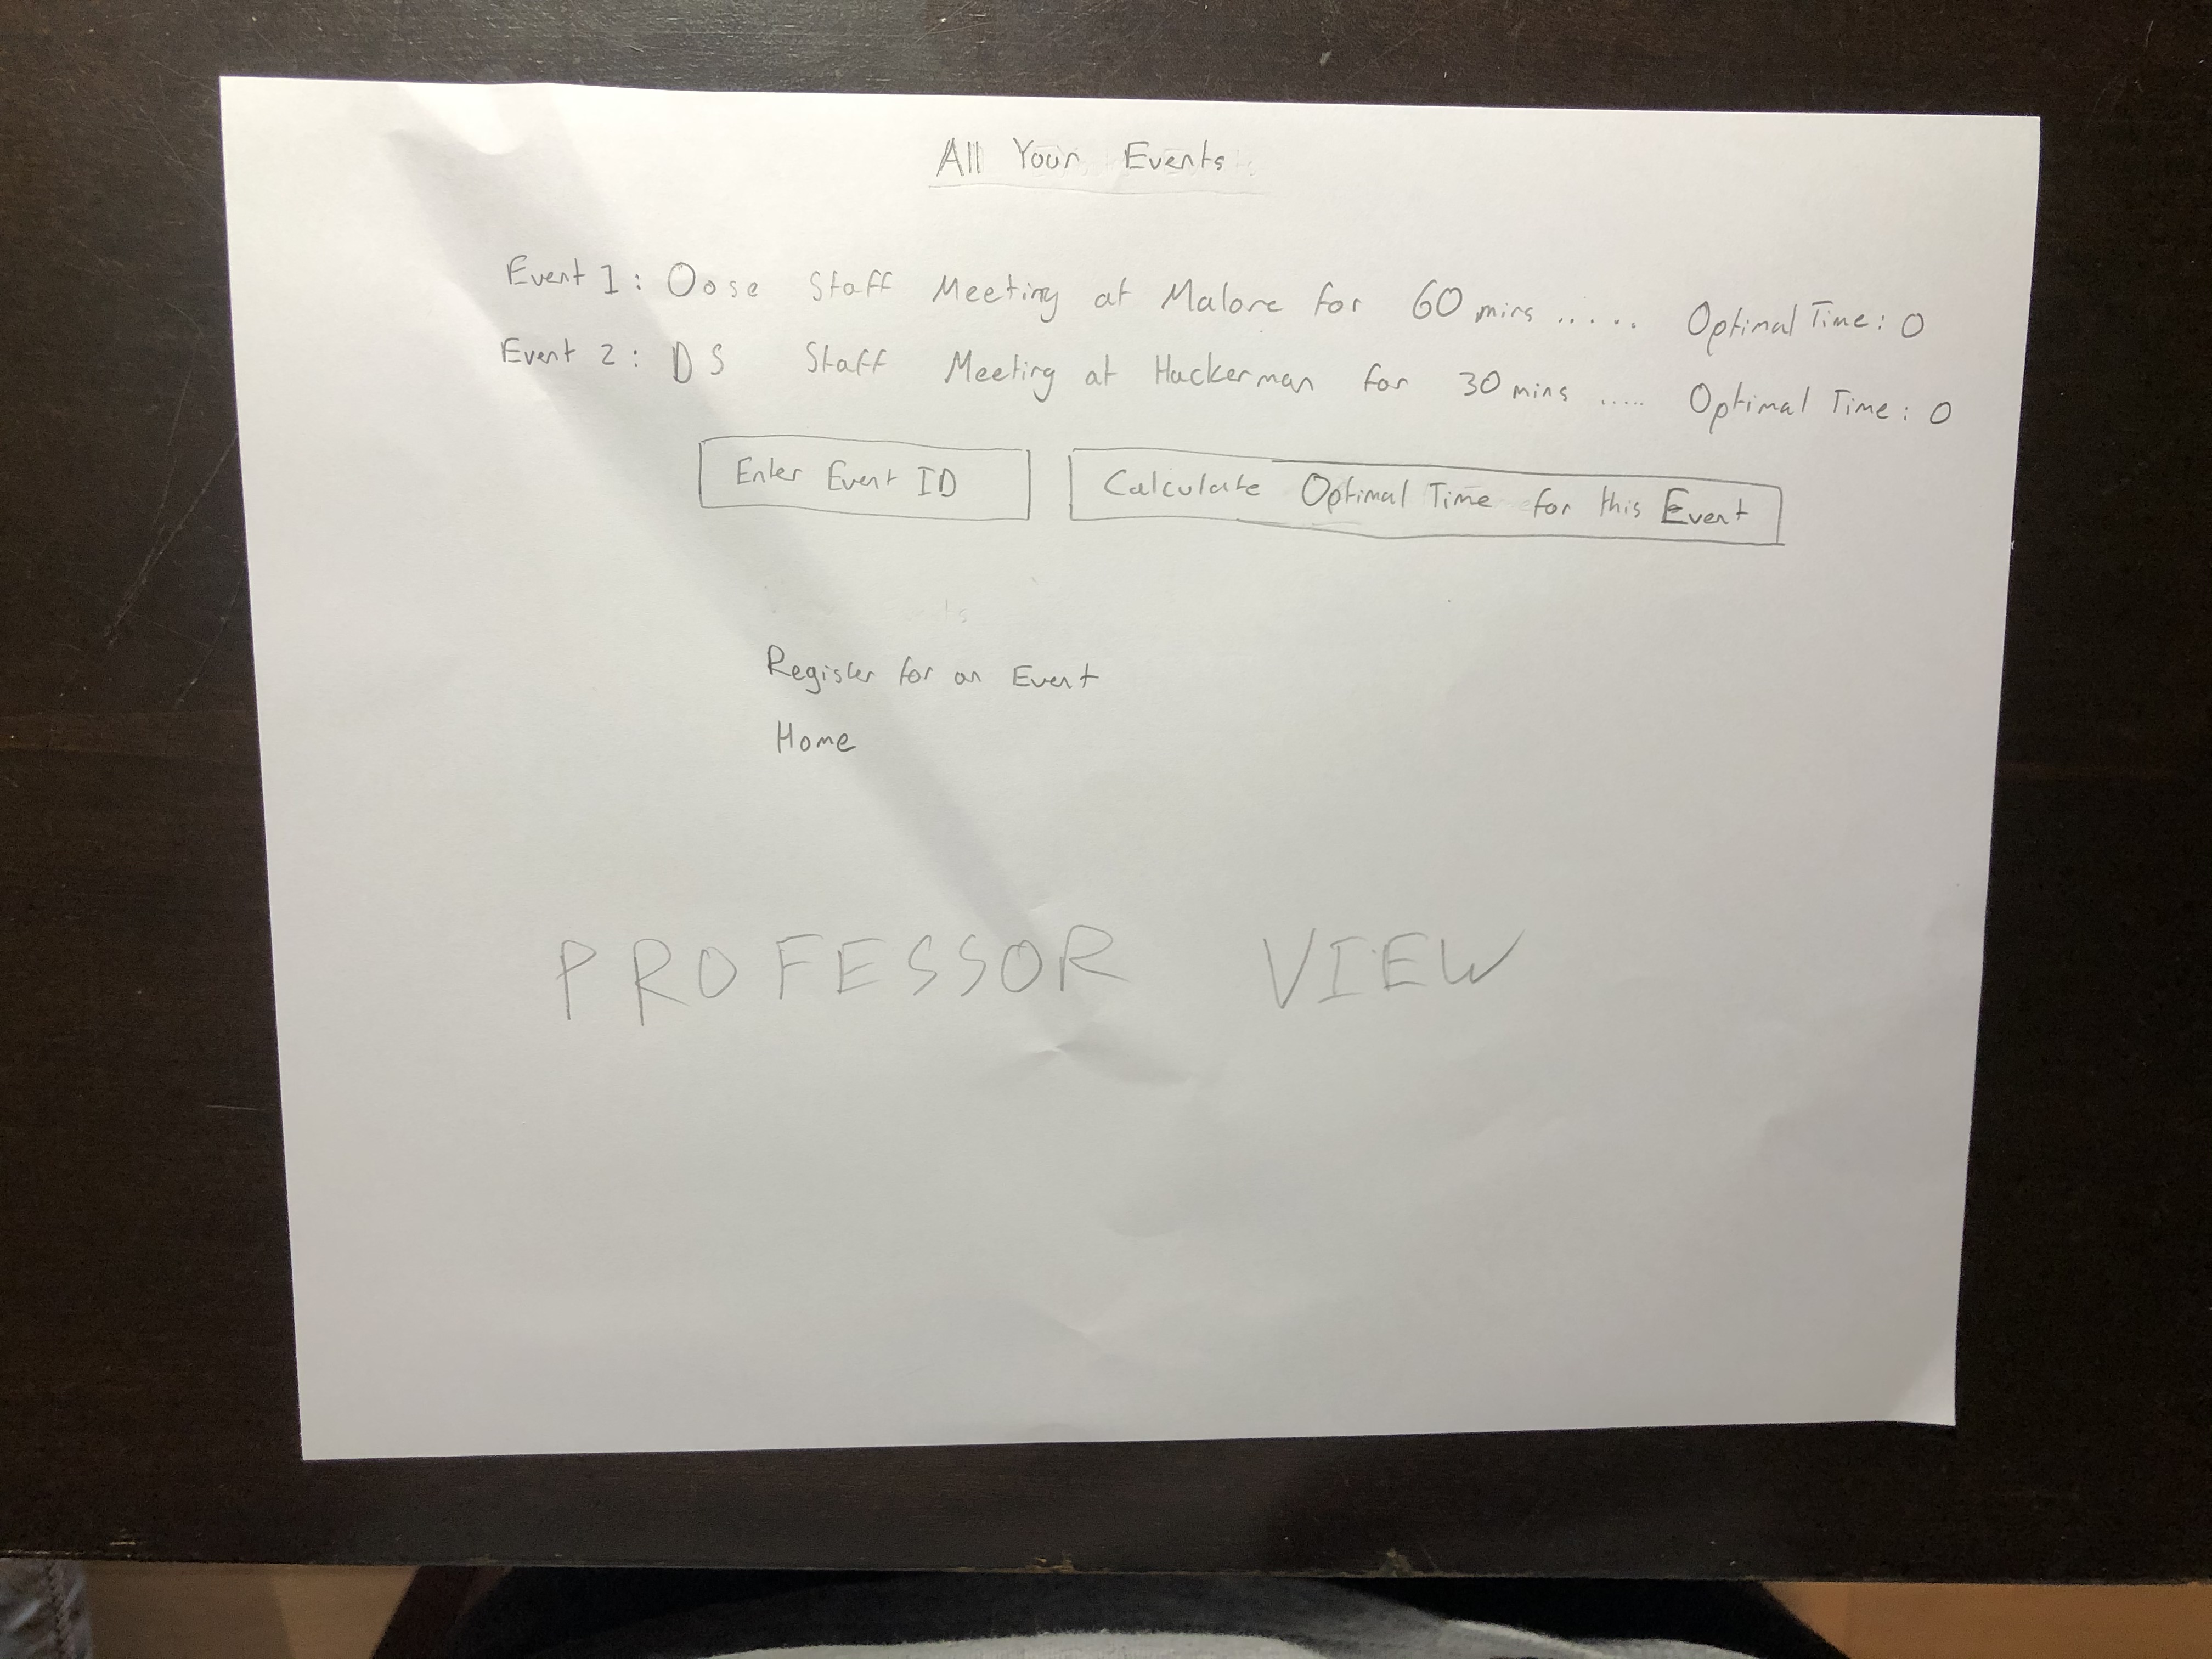 All Your Events
Event 1: Oose Staff Meeting at Malone for 60 mins ..... Optimal Time: 0
Event 2: DS Staff Meeting at Hackerman for 30 mins ..... Optimal Time: 0
Enter Event ID
Calculate Optimal Time for this Event
Register for an Event
Home
PROFESSOR VIEW